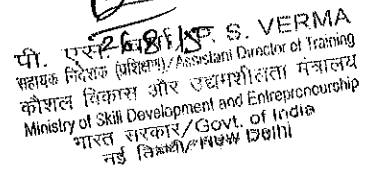 26/8/15
पी. एस. वर्मा/P. S. VERMA
सहायक निदेशक (प्रशिक्षण)/Assistant Director of Training
कौशल विकास और उद्यमशीलता मंत्रालय
Ministry of Skill Development and Entrepreneurship
भारत सरकार/Govt. of India
नई दिल्ली/New Delhi